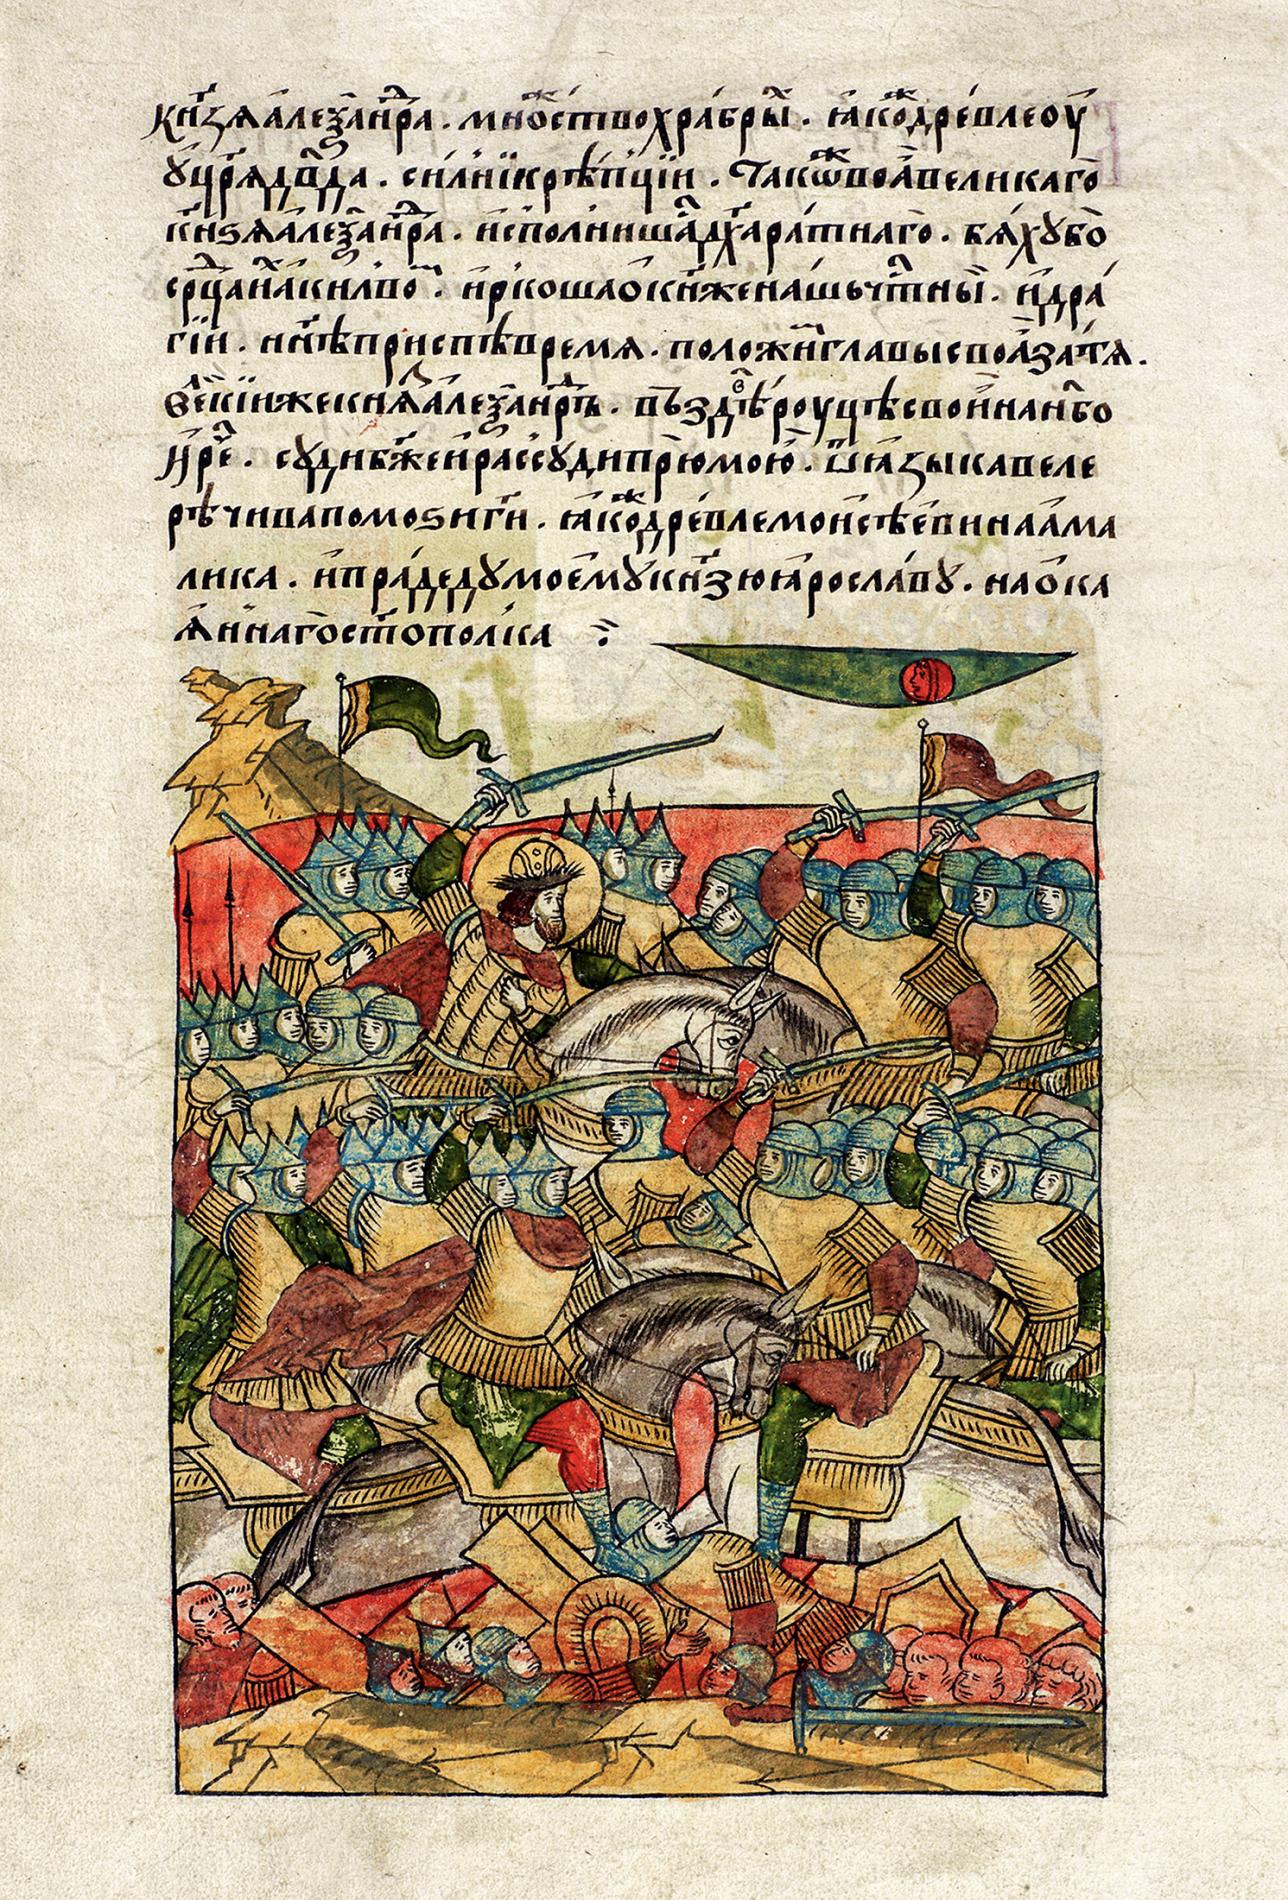 кн҃ѧзѧ алеѯа́нⷣра . мно́жⷭество хра́бры . ꙗ́коⷤ дре́вле оу҆
ꙋ҆ цр҃ѧ дв҃да . си́лнїи крѣ́пцїи . та́коⷤ во́и вели́каго
кн҃ѕѧ алеѯа́нⷣра . и҆спо́лнишаⷭ дх҃а ра́тнаго . бѧ́хꙋ бо
срⷣца и҆́мⸯ а҆́ки лво́мⸯ . и҆ рко́ша ѻ҆ кн҃же на́шь чⷭтны́и . и҆ дра
гі́и . нн҃ѣ приспѣ̀ вре́мѧ . положи́ти главы̀ своѧ̀ за тѧ̀ .
вели́кїи же кн҃ѕь алеѯа́нⷣръ . въздѣ́в рꙋ́цѣ своѝ на нб҃о
и҆ рече́ . сꙋдѝ бж҃е и҆ рассꙋдѝ прю̀ мою̀ . ѿ ꙗ҆зы́ка веле
рѣ́чива помоѕѝ гⷭи . ꙗ́коⷤ дре́вле мои҆сѣ́еви на а҆ма
лика . и҆ пра́дедꙋ моемꙋ̀ кн҃зю ꙗ҆росла́вꙋ . на ѻ҆ка
ѧ́ннаго ст҃опо́лка ⁘